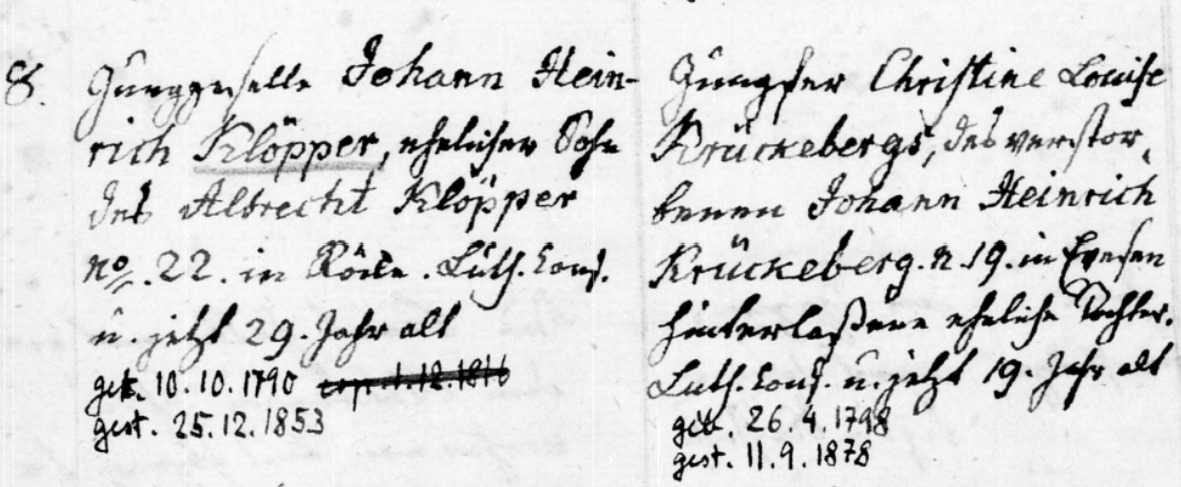 8. Junggeselle Johann Hein-
rich Klöpper, ehelicher Sohn
des Albrecht Klöpper
no. 22. in Röcke. Luth. Conf.
u. jetzt 29. Jahr alt
geb. 10.10.1790 cop. 1.12.1816
gest. 25.12.1853
Jungfer Christine Louise
Krückebergs, des verstor-
benen Johann Heinrich
Krückeberg. n. 19. in Evesen
hinterlaßene eheliche Tochter.
Luth. Conf. u. jetzt 19. Jahr alt
geb. 26.4.1798
gest. 11.9.1878